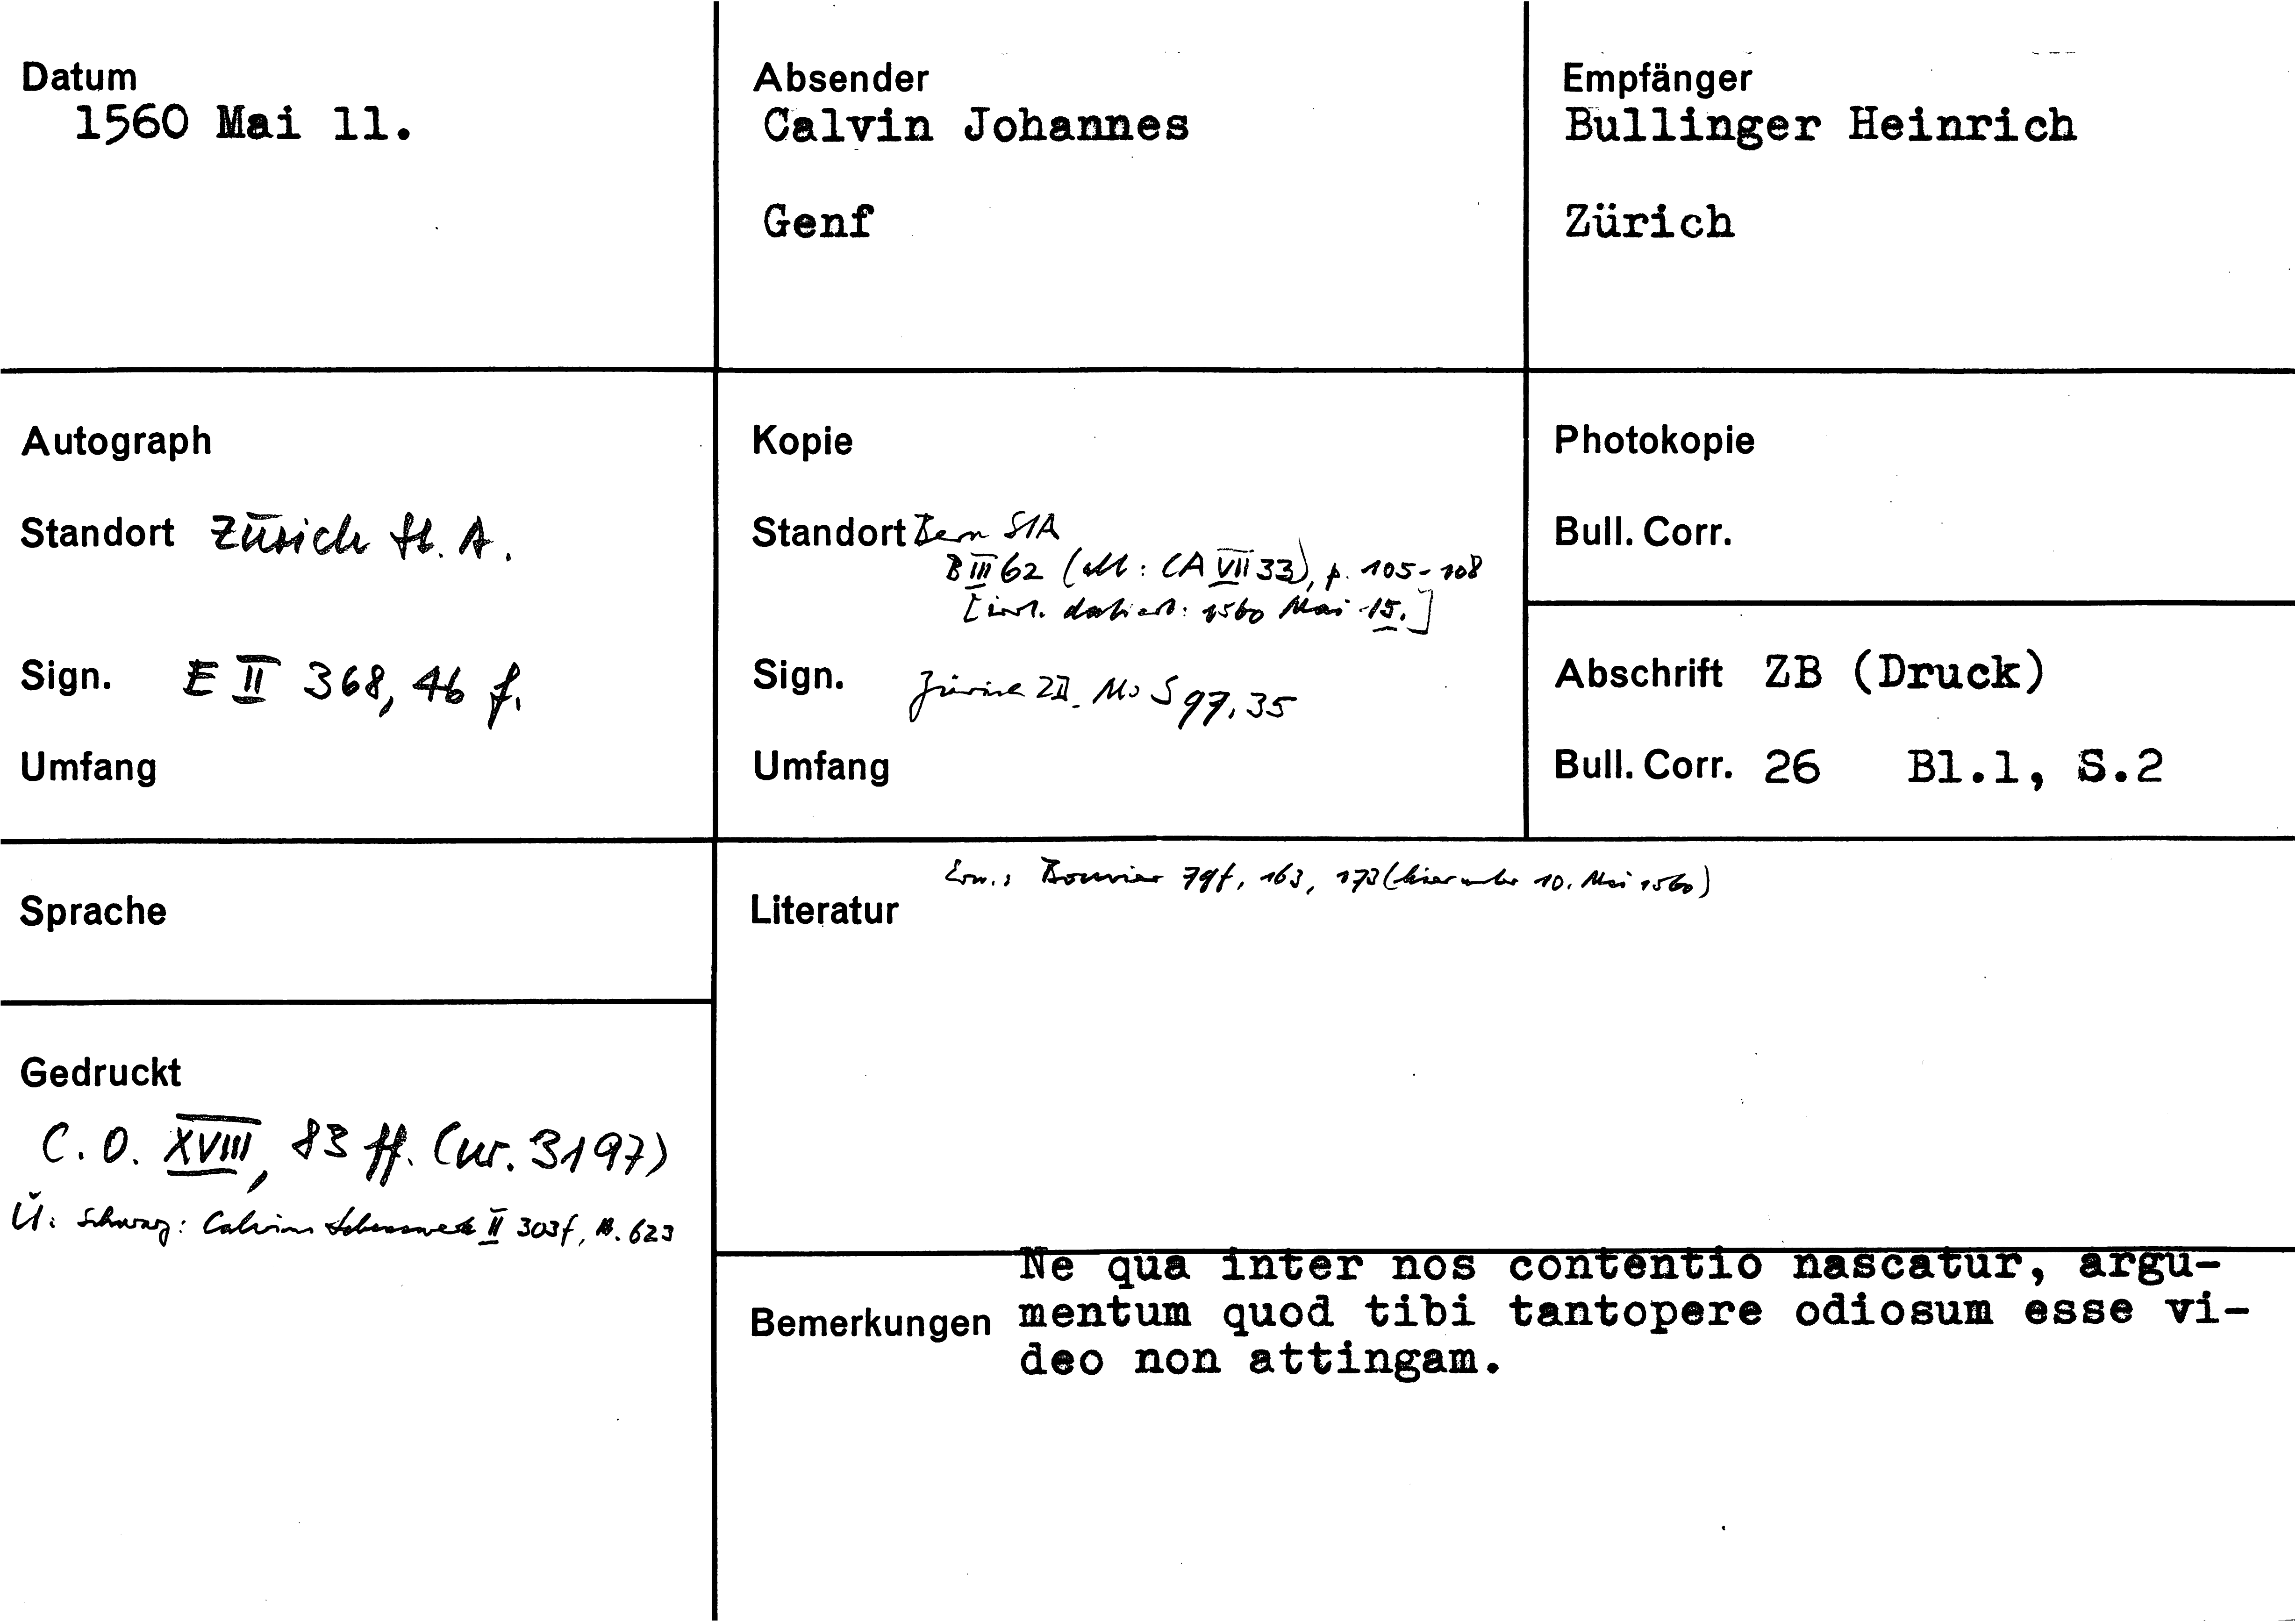 Datum
1560 Mai 11.
Absender
Calvin Johannes
Genf
Empfänger
Bullinger Heinrich
Zürich
Autograph
Standort Zürich St. A.
Sign. E II 368, 46 f.
Umfang
Kopie
Standort Bern StA
B III 62 (alt: CA VII 33), p. 105-108
[irrt. datiert: 1560 Mai 15.]
Sign. Zürich ZB. Ms S 97, 35
Umfang
Photokopie
Bull. Corr.
Abschrift ZB (Druck)
Bull. Corr. 26 Bl.1, S.2
Sprache
Erw.: Bouvier 79f, 163, 173 (hier unter 10. Mai 1560)
Literatur
Gedruckt
C. O. XVIII, 83 ff. (nr. 3197)
Ü: Schwarz: Calvins Lebenswerk II 303f, N. 623
Ne qua inter nos contentio nascatur, argu-
Bemerkungen mentum quod tibi tantopere odiosum esse vi-
deo non attingam.